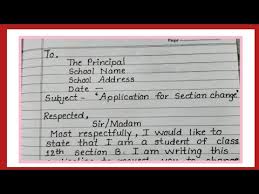 Page
To,
The Principal
School Name
School Address
Date —
Subject - "Application for Section change"
Respected,
Sir/Madam
Most respectfully, I would like to
state that I am a student of class
12th section B. I am writing this
to request you to change